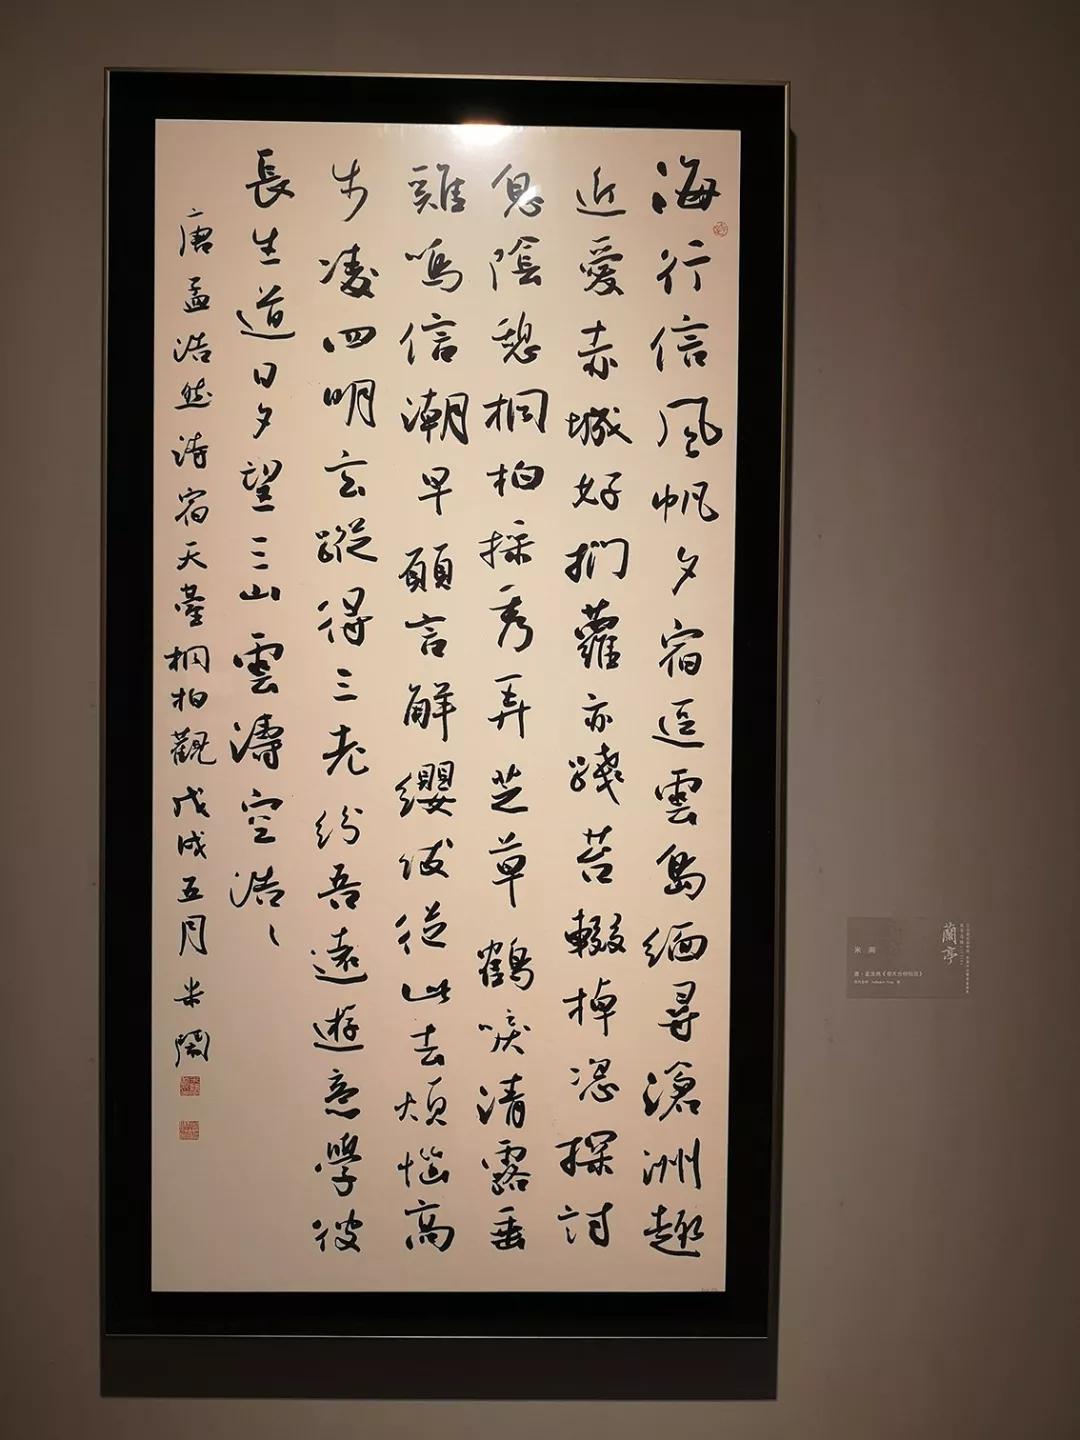 海行信風帆夕宿逗雲島緬尋滄洲趣
近愛赤城好捫蘿亦踐苔輟棹恣探討
息陰憩桐柏採秀弄芝草鶴唳清露垂
雞鳴信潮早願言解纓紱從此去煩惱高
步凌四明玄蹤得三老紛吾遠遊意學彼
長生道日夕望三山雲濤空浩〻
唐孟浩然詩宿天臺桐柏觀戊戌五月米鬧
蘭亭
米 鬧
唐·孟浩然《宿天台桐柏观》